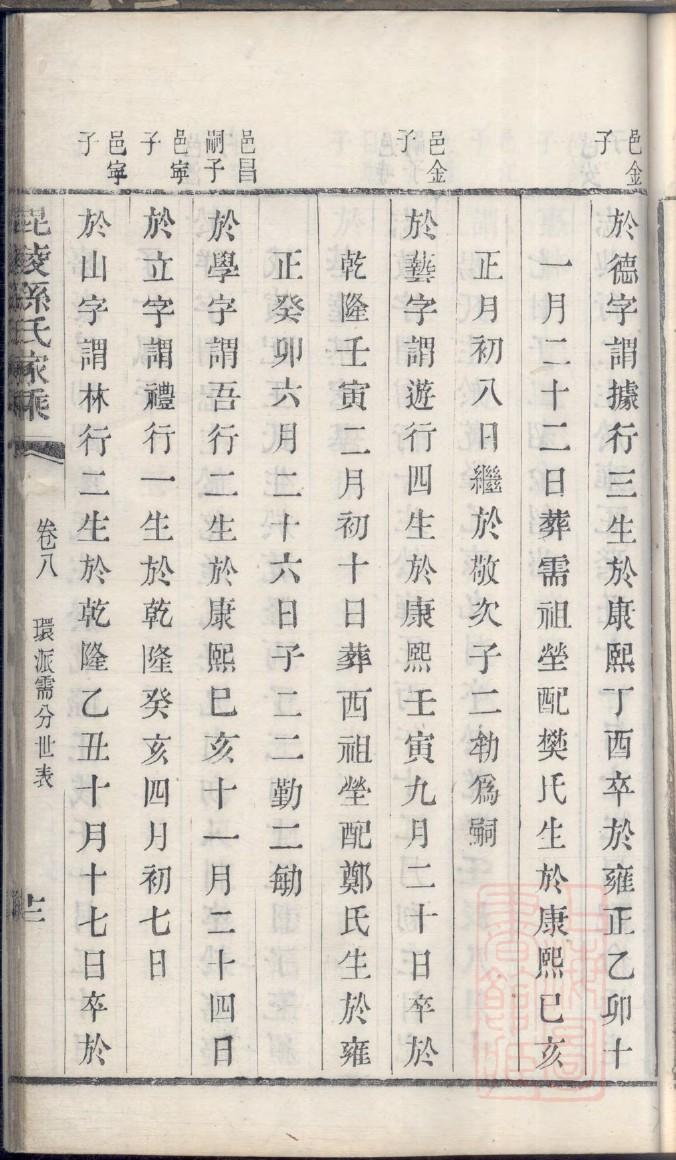 邑金子
於德字謂據行三生於康熙丁酉卒於雍正乙卯十
一月二十二日葬需祖塋配樊氏生於康熙已亥
正月初八日繼於敬次子二勑爲嗣
邑金子
於藝字謂遊行四生於康熙壬寅九月二十日卒於
乾隆壬寅二月初十日葬西祖塋配鄭氏生於雍
正癸卯六月二十六日子二二勤二勄
邑昌嗣子
於學字謂吾行二生於康熙巳亥十一月二十四日
邑寧子
於立字謂禮行一生於乾隆癸亥四月初七日
邑寧子
於山字謂林行二生於乾隆乙丑十月十七日卒於
毘陵孫氏家乘
卷八
環派需分世表